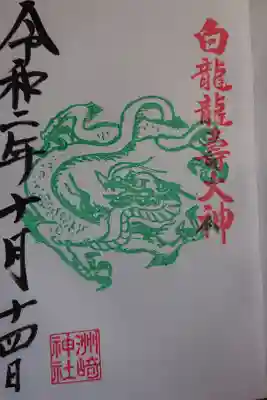 白龍龍壽大神
令和二年十月十四日
洲﨑
神社